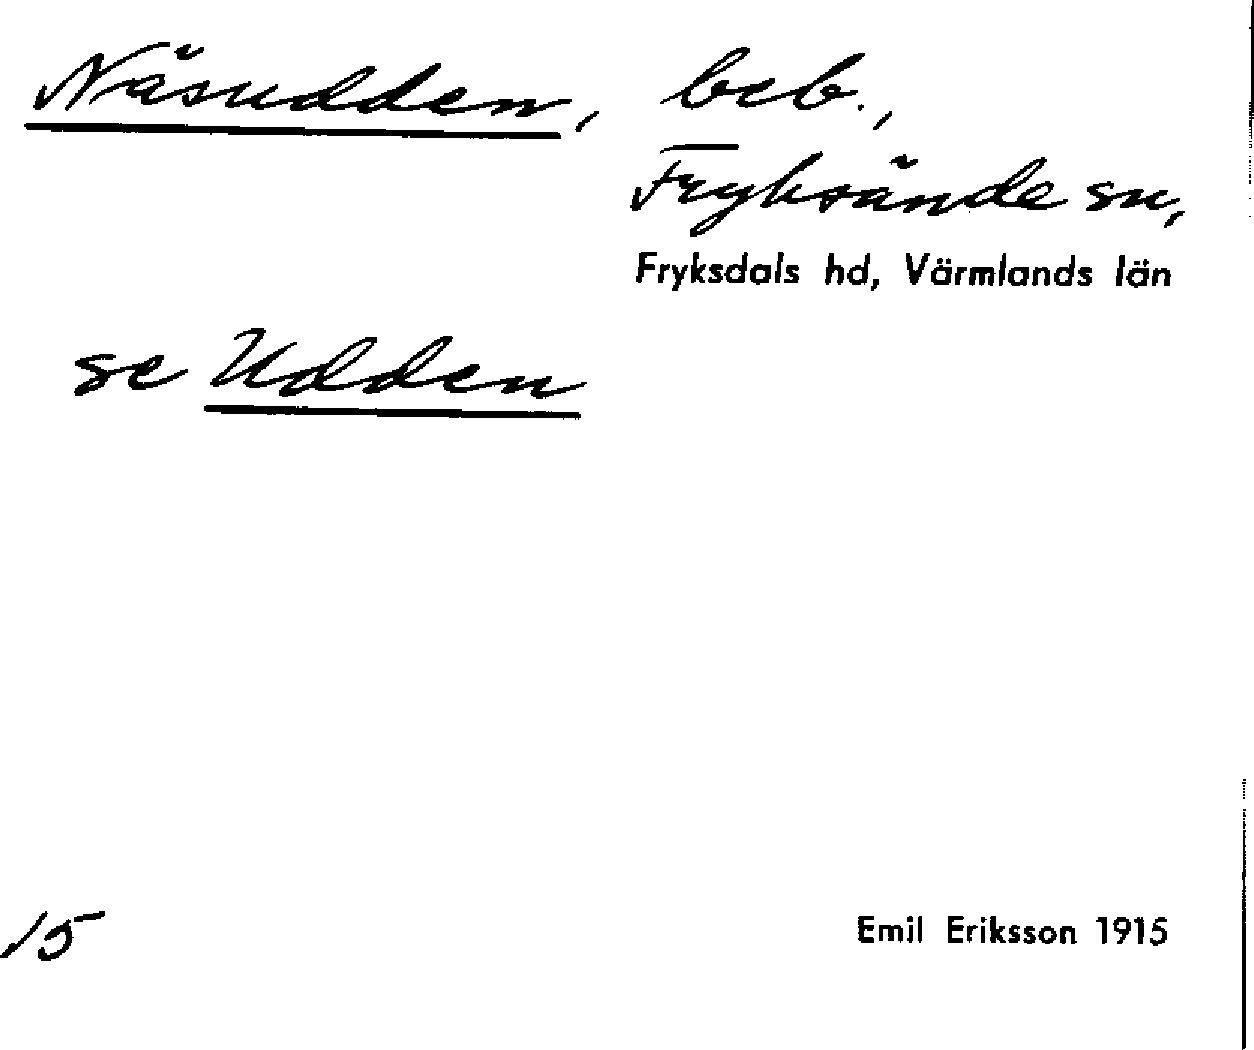 Näsudden, beb.,
Fryksände sn,
Fryksdals hd, Värmlands län
se Udden
15
Emil Eriksson 1915